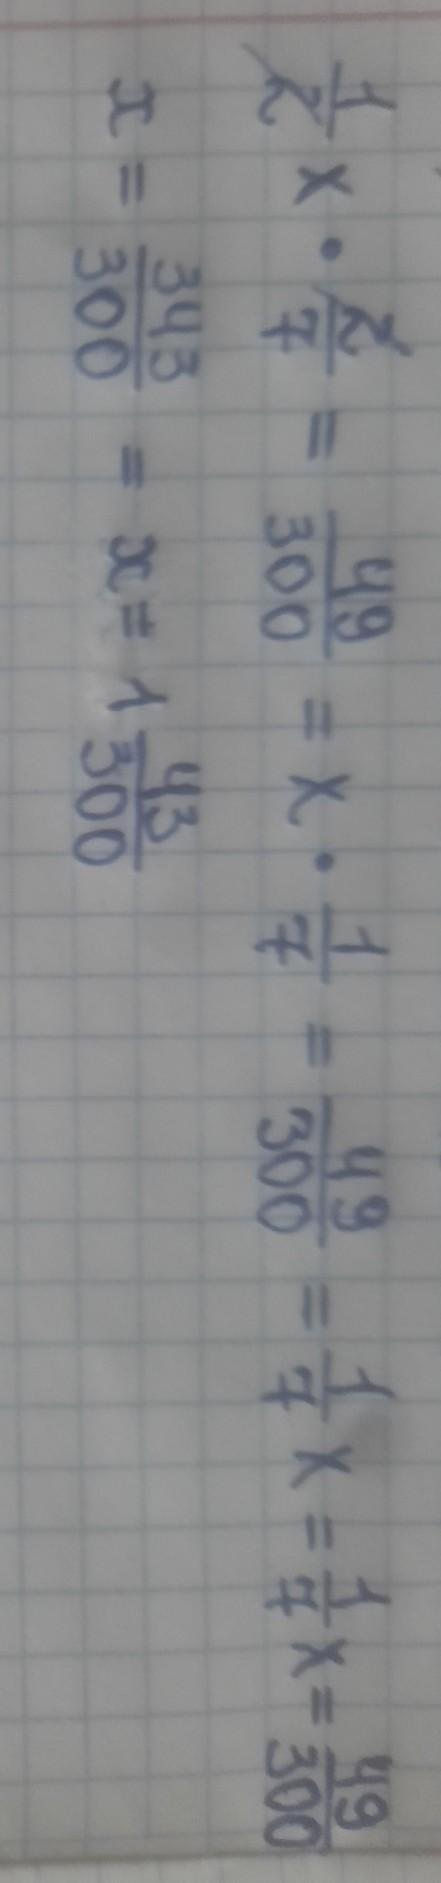 1/2 x · 2/7 = 49/300 = x · 1/7 = 49/300 = 1/7 x = 1/7 x = 49/300
x = 343/300 = x = 1 43/300